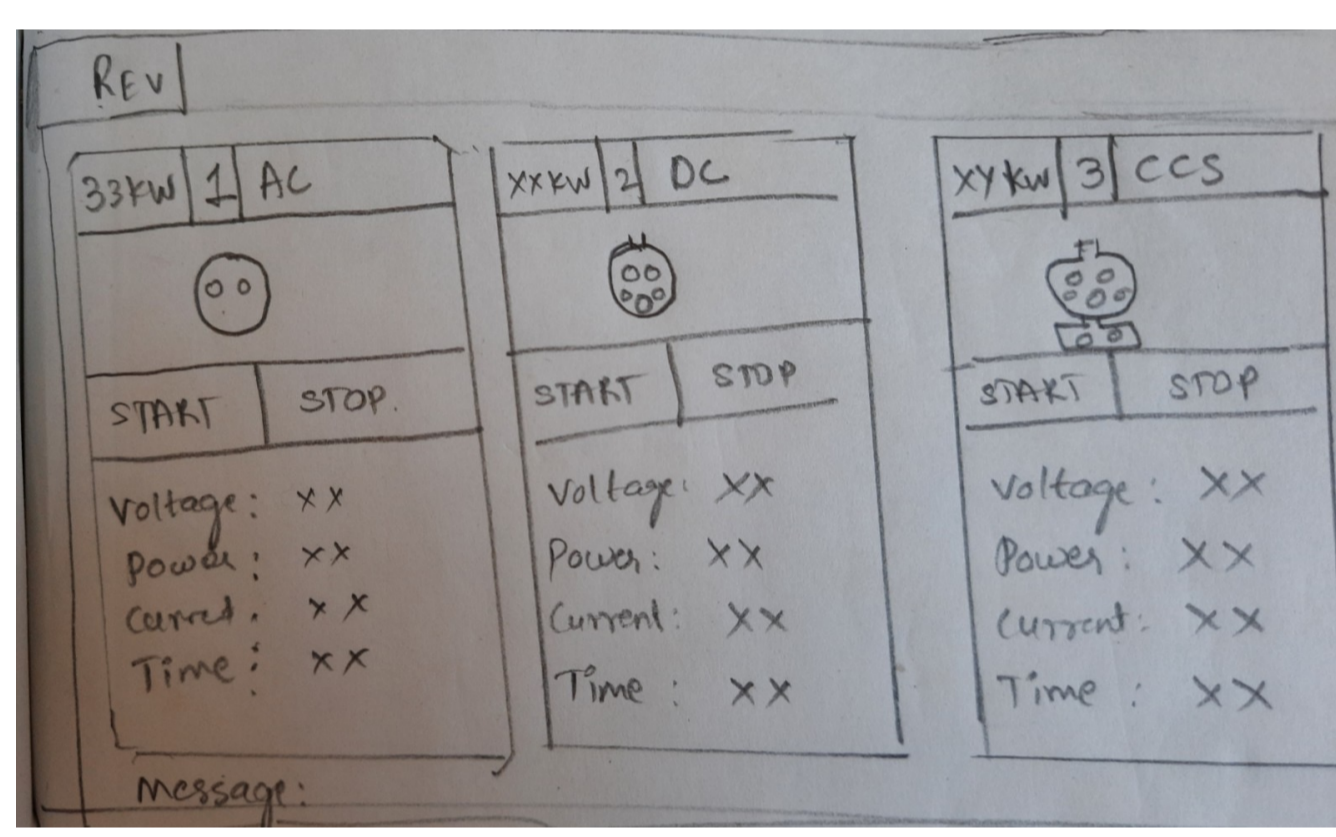 REV
33KW 1 AC
START STOP.
Voltage: XX
Power: XX
Current: XX
Time: XX
XXKW 2 DC
START STOP
Voltage: XX
Power: XX
Current: XX
Time: XX
XYKW 3 CCS
START STOP
Voltage: XX
Power: XX
Current: XX
Time: XX
Message: